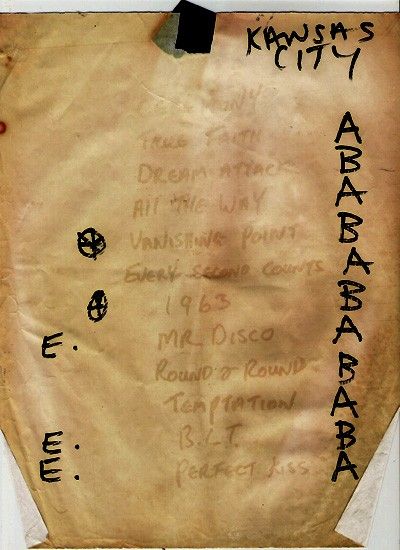 KANSAS
CITY
TAKE FAITH A
DREAM ATTACK B
ALL THE WAY A
VANISHING POINT B
EVERY SECOND COUNTS A
1963 B
E. MR DISCO A
ROUND & ROUND B
TEMPTATION A
E. B.L.T. B
E. PERFECT KISS A